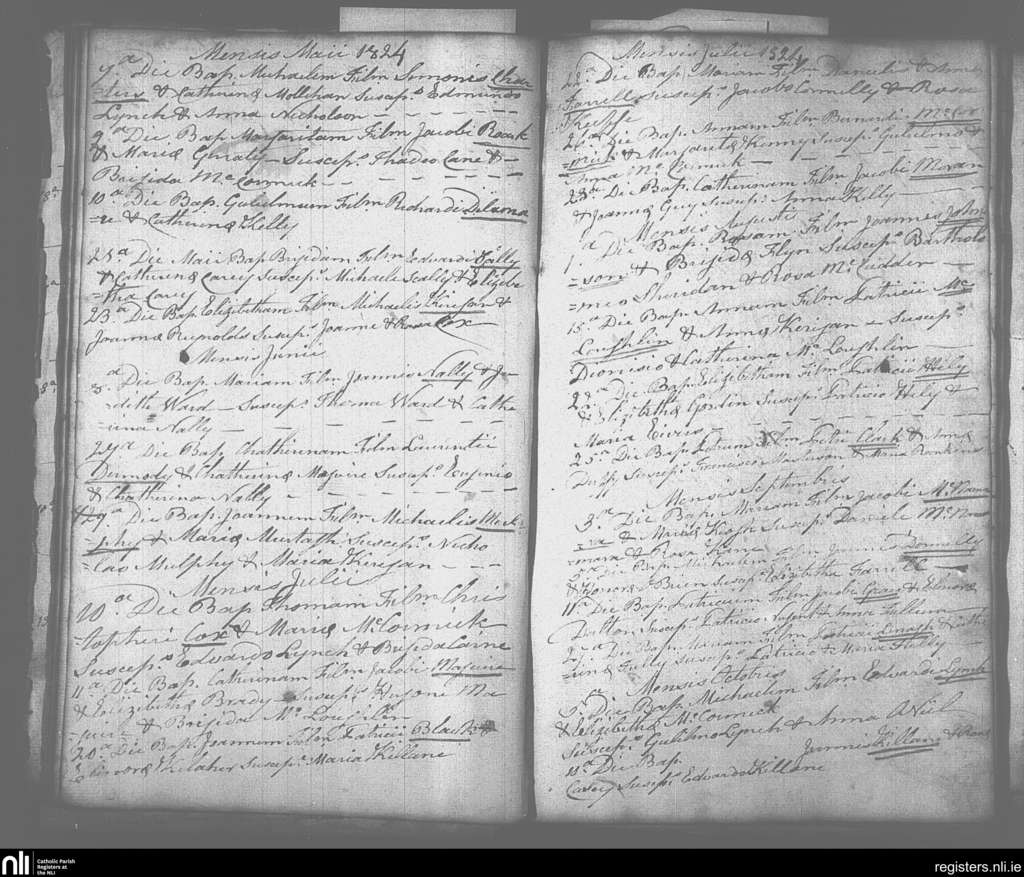 Mensis Maii 1824
7a Die Bap. Michaelem Film Simonis Char
=ters & Catherinæ Mollehan Suscep.s Edmundo
Lynch & Anna Nicholson
9a Die Bap Margaritam Film Jacobi Roark
& Mariæ Geraty — Suscep.s Thadeo Cane & —
Brigida McCormick
10a Die Bap. Gulielmum Film Richardi Dilama
=re & Catherinæ Kelly
21a Die Maii Bap Brigidam Film Edwardi Scally
& Catherinæ Carey Suscep.s Michaele Scally & Elizabe
=tha Carey
23a Die Bap. Elizibetham Film Michaelis Kerigan &
Joannæ Reynolds Suscep.s Joanne & Rosa Cox
Mensis Junii
3a Die Bap. Mariam Film Joannis Nally & Ju
=dith Ward — Suscep.s Thoma Ward & Cathe
=rina Nally
24a Die Bap. Chatherinam Film Laurentii
Dermody & Chatherinæ Maguire Suscep.s Eugenio
& Chatherina Nally
29a Die Bap. Joannem Film Michaelis Mur
=phy & Mariæ Murtath Suscep.s Nicho
=lao Mulphy & Maria Kerigan
Mensis Julii
10a Die Bap Thomam Film Chris
=topheri Cox & Mariæ McCormick
Suscep.s Edwardo Lynch & Brigida Laine
11a Die Bap. Catherinam Film Jacobi Maguire
& Elizibethæ Brady — Suscep.s Hugoni Ma
=guire & Brigida McLoughlin
20a Die Bap. Joannem Film Patricii Black &
Elinoræ Kelaher Suscep.s Maria Killane
Mensis Julii 1824
22a Die Bap. Mariam Film & Annæ
Farrell Suscep.s Jacobo Connelly & Rosa
Keeffe
26a Die Bap. Annam Film Bernardi McCor
=mick & Margaritæ Kenny Suscep.s Gulielmo &
Anna McCormick
28a Die Bap. Catherinam Film Jacobi Moran
& Joannæ Guy Suscep.s Anna Kelly
Mensis Augusti
1a Die Bap. Rosam Film Joannis John
=son & Brigidæ Flyn Suscep.s Bartholo
=meo Sheridan & Rosa McCudden
15a Die Bap. Annam Film Patricii Mc
Loughlin & Annæ Kerigan — Suscep.s
Dionisio & Catherina McLoughlin
22a Die Bap. Elizibetham Film Patricii Hily
& Elizibethæ Gordin Suscep.s Patricio Hily &
Maria
25a Die Bap. Patricium Film Clark & Annæ
Duffy Suscep.s Francisco & Maria
Mensis Septembris
3a Die Bap. Mariam Film Jacobi McNama
=ra & Mariæ Keogh Suscep.s Daniele McNa
=mara & Rosa
Die Bap. Michaelem Film Joannis Donnelly
& Honoræ Brien Suscep.s Elizibetha Farrell
11a Die Bap. Patricium Film Jacobi Grace & Elenoræ
Dalton Suscep.s Patricio Nugent & Anna
Die Bap. Mariam Film & Cathe
=rinæ Tully Suscep.s Patricio & Maria Kelly
Mensis Octobris
6a Die Bap. Michaelem Film Edwardi Lynch
& Elizibethæ McCormick
Suscep.s Gulielmo Lynch & Anna
10a Die Bap. Joannis Killane & Rosæ
Casey Suscep.s Edwardo Killane
nli
Catholic Parish
Registers at
the NLI
registers.nli.ie